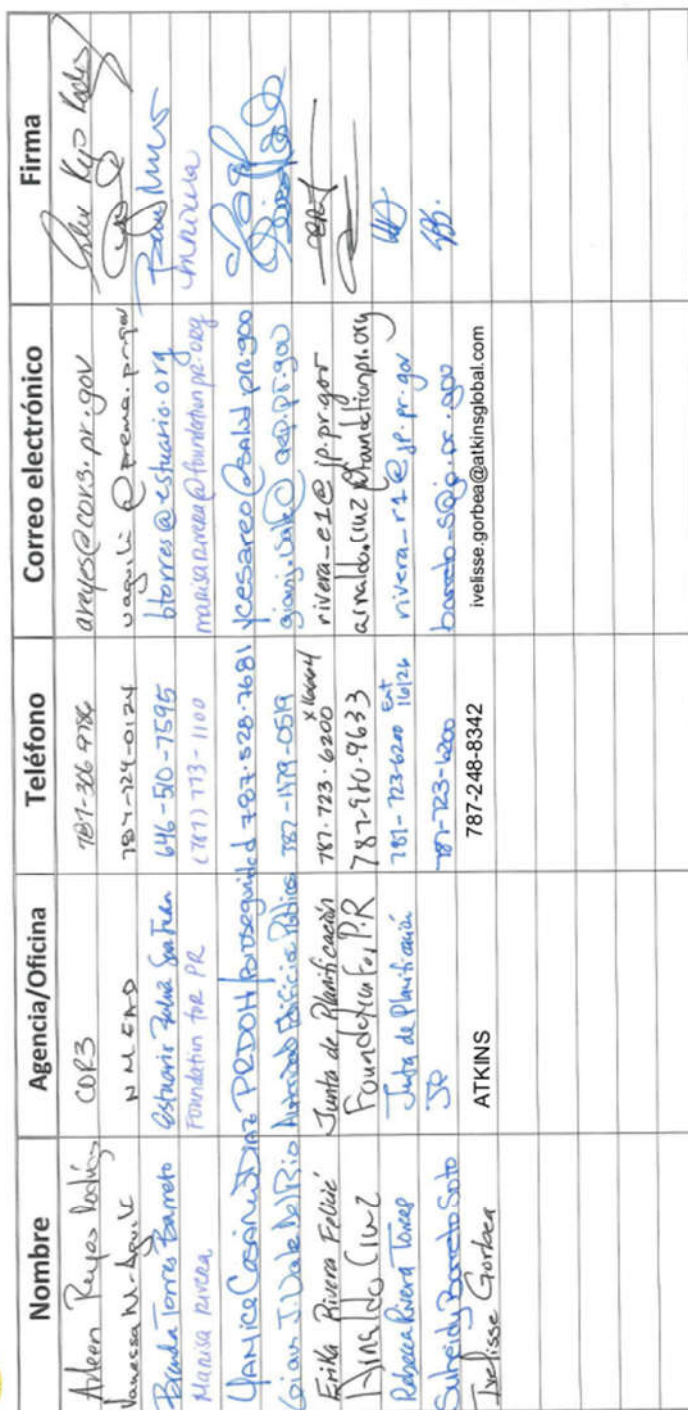 Nombre Agencia/Oficina Teléfono Correo electrónico Firma
Arleen Reyes Rodríguez COR3 787-306-9786 areyes@cor3.pr.gov
Vanessa NMEAD 787-724-0124 @prema.pr.gov
Brenda Torres Barreto Estuario San Juan 646-510-7595 btorres@estuario.org
Marisa Rivera Foundation for PR (787) 773-1100 marisa.rivera@foundationpr.org
Yanice Cesáreo Diaz PRDOH/Bioseguridad 787.528.7681 ycesareo@salud.pr.gov
Gian J. Vale Del Rio Autoridad Edificios Públicos @aep.pr.gov
Erika Rivera Felicié Junta de Planificación 787.723.6200 rivera_e1@jp.pr.gov
Arnaldo Cruz Foundation for P.R 787-960-9633 arnaldo.cruz@foundationpr.org
Rebecca Rivera Torres Junta de Planificación 787-723-6200 Ext 16126 rivera_r1@jp.pr.gov
Barreto Soto JP 787-723-6200 barreto_s@jp.pr.gov
Ivelisse Gorbea ATKINS 787-248-8342 ivelisse.gorbea@atkinsglobal.com